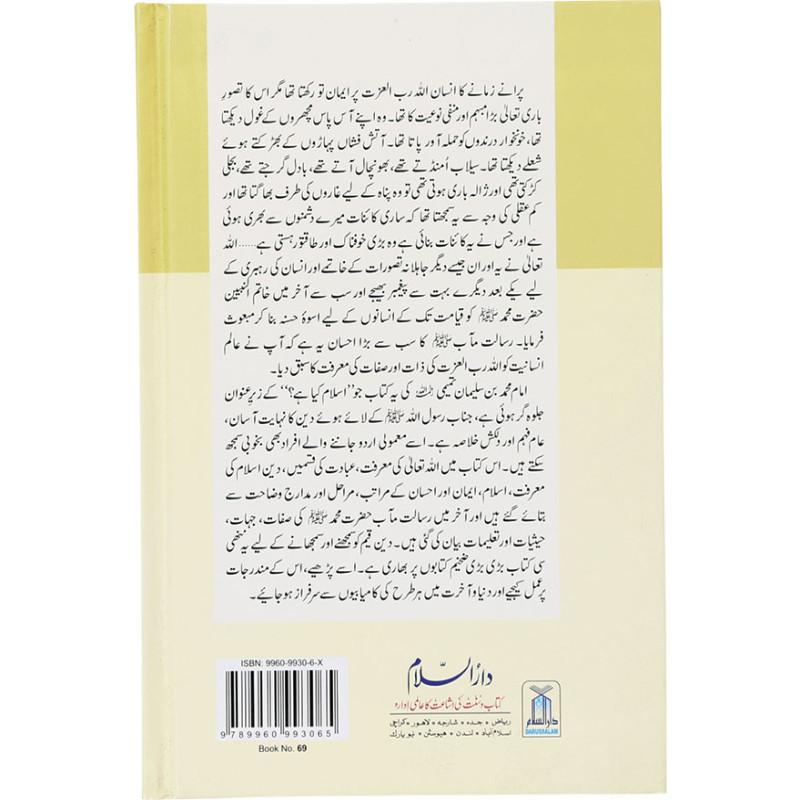 پرانے زمانے کا انسان اللہ رب العزت پر ایمان تو رکھتا تھا مگر اس کا تصورِ
باری تعالیٰ بڑا مبہم اور منفی نوعیت کا تھا۔ وہ اپنے آس پاس مچھروں کے غول دیکھتا
تھا، خونخوار درندوں کو حملہ آور پاتا تھا۔ آتش فشاں پہاڑوں کے بھڑکتے ہوئے
شعلے دیکھتا تھا۔ سیلاب اُمنڈتے تھے، بھونچال آتے تھے، بادل گرجتے تھے، بجلی
کڑکتی تھی اور ژالہ باری ہوتی تھی تو وہ پناہ کے لیے غاروں کی طرف بھاگتا تھا اور
کم عقلی کی وجہ سے یہ سمجھتا تھا کہ ساری کائنات میرے دشمنوں سے بھری ہوئی
ہے اور جس نے یہ کائنات بنائی ہے وہ بڑی خوفناک اور طاقتور ہستی ہے...... اللہ
تعالیٰ نے یہ اور ان جیسے دیگر جاہلانہ تصورات کے خاتمے اور انسان کی رہبری کے
لیے یکے بعد دیگرے بہت سے پیغمبر بھیجے اور سب سے آخر میں خاتم النبیین
حضرت محمد ﷺ کو قیامت تک کے انسانوں کے لیے اسوۂ حسنہ بنا کر مبعوث
فرمایا۔ رسالت مآب ﷺ کا سب سے بڑا احسان یہ ہے کہ آپ نے عالم
انسانیت کو اللہ رب العزت کی ذات اور صفات کی معرفت کا سبق دیا۔
امام محمد بن سلیمان تمیمی رحمہ اللہ کی یہ کتاب جو ”اسلام کیا ہے؟“ کے زیرِ عنوان
جلوہ گر ہوئی ہے، جناب رسول اللہ ﷺ کے لائے ہوئے دین کا نہایت آسان،
عام فہم اور دلکش خلاصہ ہے۔ اسے معمولی اردو جاننے والے افراد بھی بخوبی سمجھ
سکتے ہیں۔ اس کتاب میں اللہ تعالیٰ کی معرفت، عبادت کی قسمیں، دین اسلام کی
معرفت، اسلام، ایمان اور احسان کے مراتب، مراحل اور مدارج وضاحت سے
بتائے گئے ہیں اور آخر میں رسالت مآب حضرت محمد ﷺ کی صفات، جہات،
حیثیات اور تعلیمات بیان کی گئی ہیں۔ دین قیم کو سمجھنے اور سمجھانے کے لیے یہ ننھی
سی کتاب بڑی بڑی ضخیم کتابوں پر بھاری ہے۔ اسے پڑھیے، اس کے مندرجات
پر عمل کیجیے اور دنیا و آخرت میں ہر طرح کی کامیابیوں سے سرفراز ہو جائیے۔
ISBN: 9960-9930-6-X
9 789960 993065
Book No. 69
دارُالسّلام
کتاب و سنت کی اشاعت کا عالمی ادارہ
ریاض • جدہ • شارجہ • لاہور • کراچی
اسلام آباد • لندن • ہیوسٹن • نیو یارک
دارالسلام
DARUSSALAM